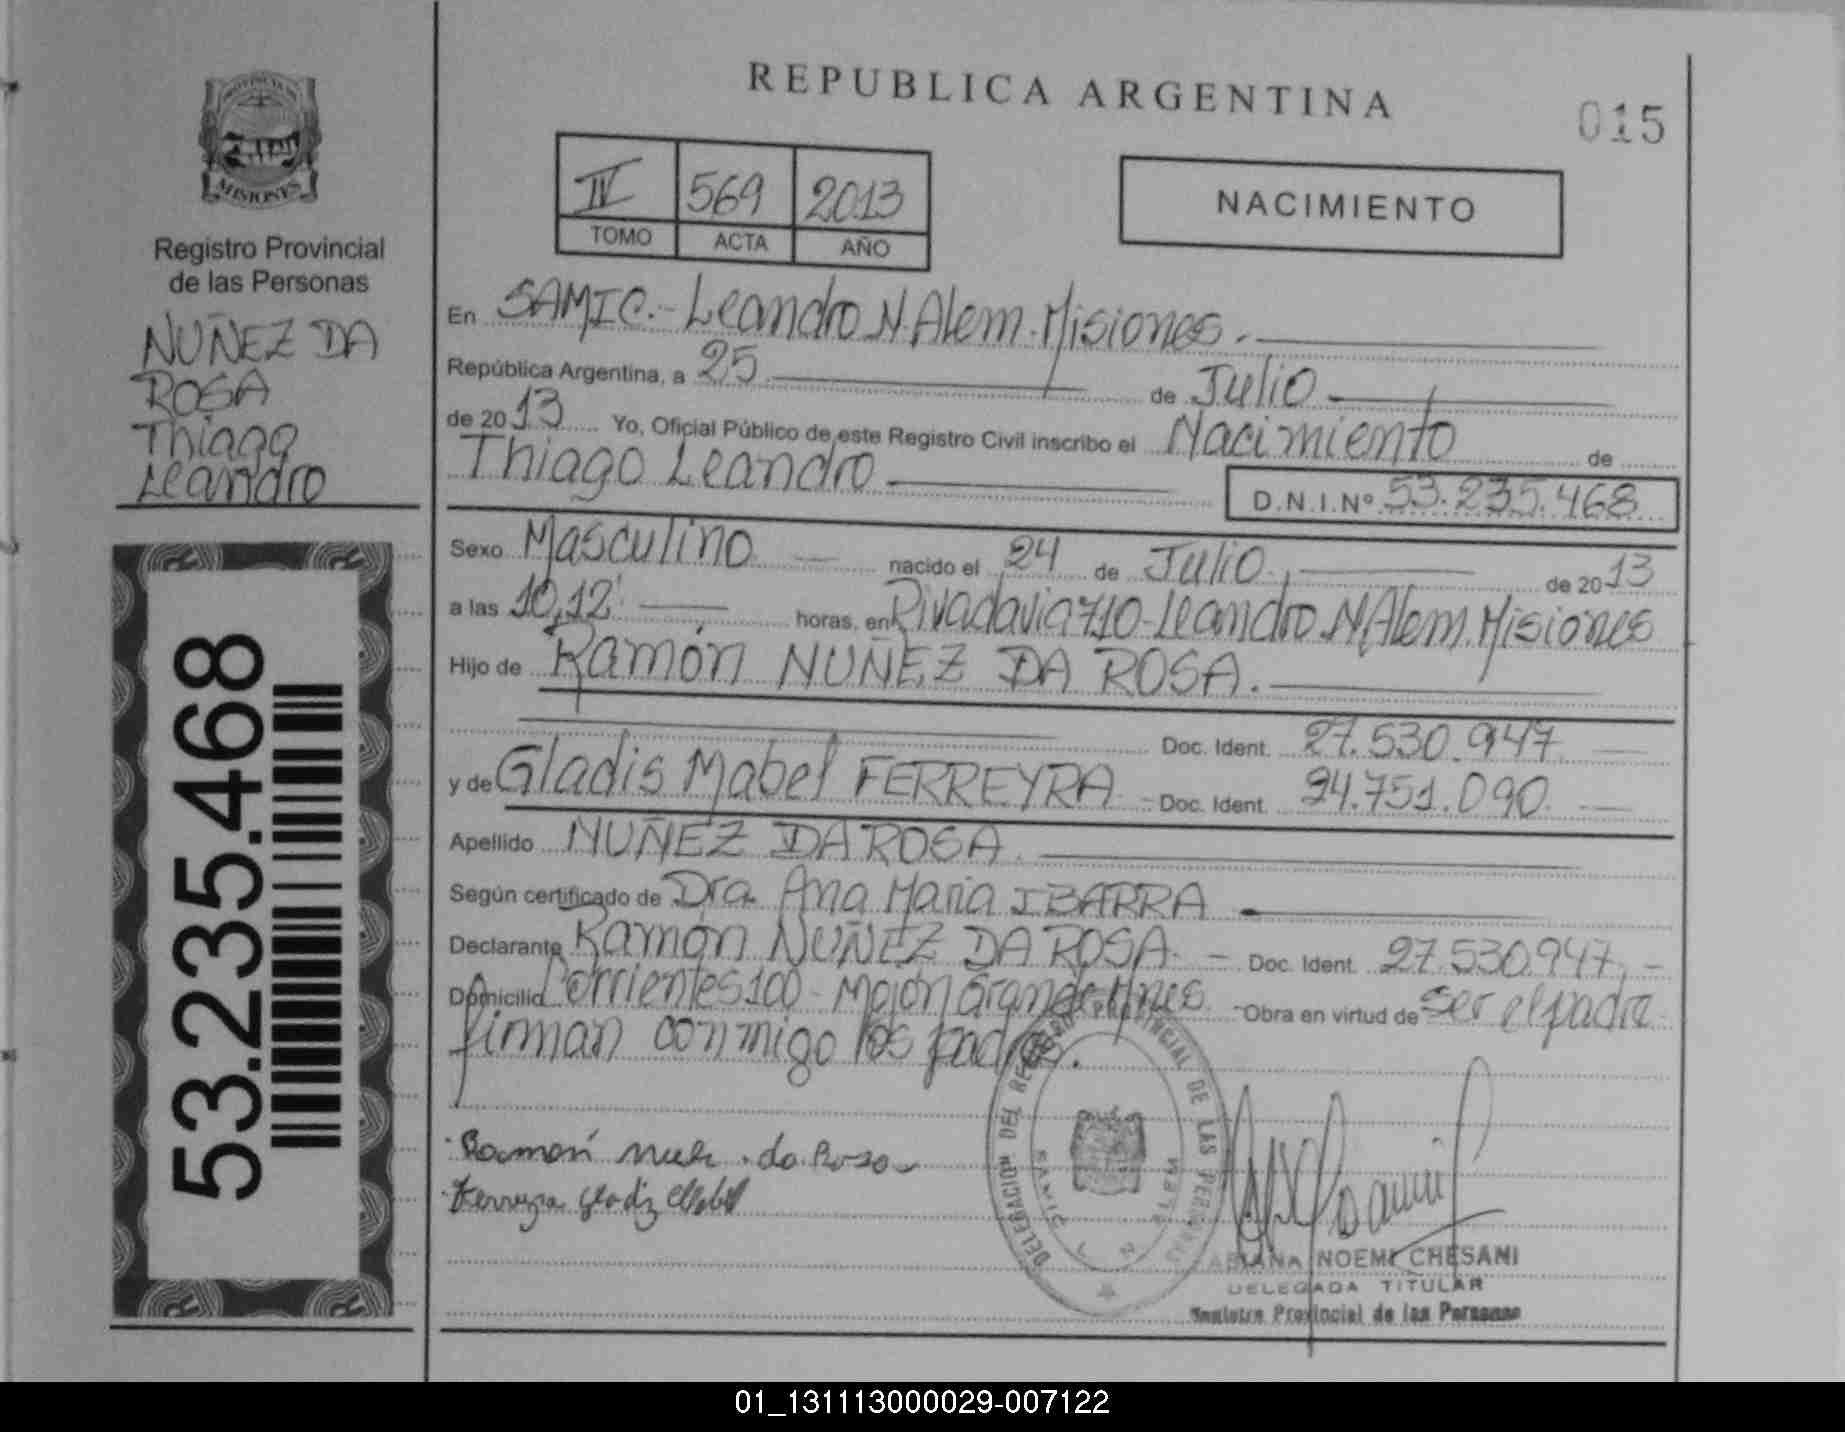 PROVINCIA DE
MISIONES
Registro Provincial
de las Personas
NUÑEZ DA
ROSA
Thiago
Leandro
53.235.468
REPUBLICA ARGENTINA
015
IV 569 2013
TOMO ACTA AÑO
NACIMIENTO
En SAMIC.- Leandro N. Alem. Misiones.
República Argentina, a 25 de Julio
de 2013 Yo, Oficial Público de este Registro Civil inscribo el Nacimiento de
Thiago Leandro
D.N.I.Nº 53.235.468
Sexo Masculino nacido el 24 de Julio, de 2013
a las 10,12' horas, en Rivadavia 710-Leandro N. Alem. Misiones
Hijo de Ramón NUÑEZ DA ROSA.
Doc. Ident. 27.530.947
y de Gladis Mabel FERREYRA - Doc. Ident. 94.751.090
Apellido NUÑEZ DA ROSA.
Según certificado de Dra. Ana Maria IBARRA
Declarante Ramón NUÑEZ DA ROSA. - Doc. Ident. 27.530.947,-
Domicilio Corrientes 100 - Mojón Grande Mnes. - Obra en virtud de ser el padre
firman conmigo los padres.
Ramón da Rosa
Ferreyra Gladiz Mabel
DELEGACION DEL REGISTRO PROVINCIAL DE LAS PERSONAS
SAMIC L N ALEM
ARIANA NOEMI CHESANI
DELEGADA TITULAR
Registro Provincial de las Personas
01_131113000029-007122